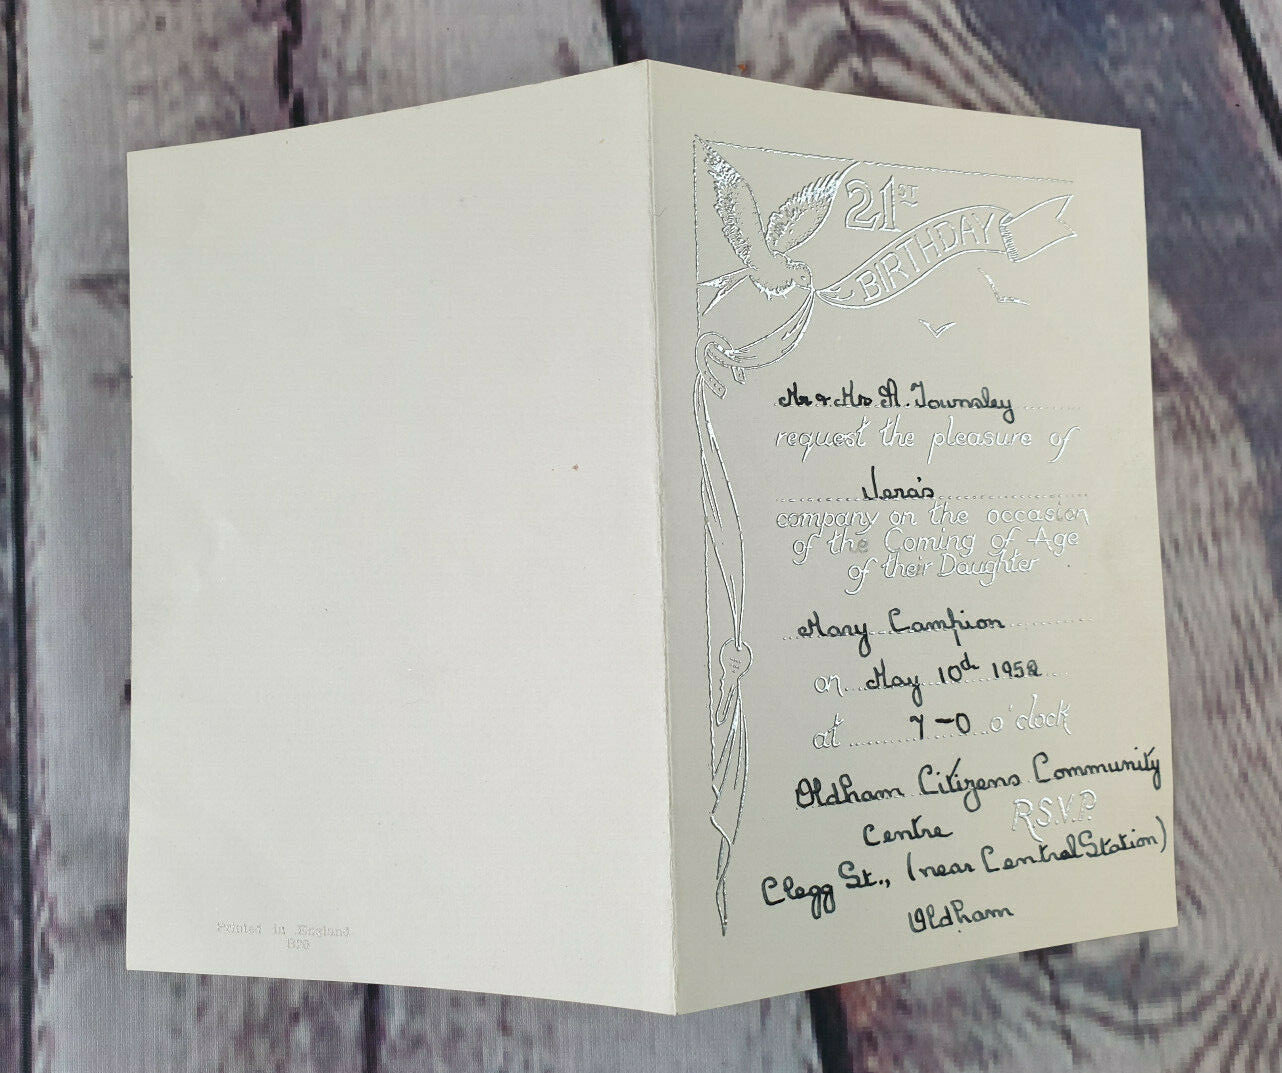 21ST
BIRTHDAY
Mr & Mrs A. Townsley
request the pleasure of
Vera's
company on the occasion
of the Coming of Age
of their Daughter
Mary Campion
on May 10th 1952
at 7-0 o'clock
Oldham Citizens Community
Centre R.S.V.P.
Clegg St., (near Central Station)
Oldham
Printed in England